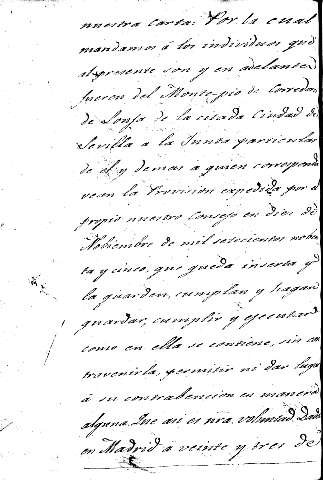 nuestra carta: Por la cual
mandamos á los individuos que
al presente son y en adelante
fueren del Monte-pio de Corredon
de Lonja de la citada Ciudad de
Sevilla a la Junta particular
de el y demas a quien corresponda
vean la Provision expedida por el
propio nuestro Consejo en dies de
Nobiembre de mil setecientos noben
ta y cinco, que queda inserta y
la guarden, cumplan y hagan
guardar, cumplir y ejecutar
como en ella se contiene, sin con
travenirla, permitir ni dar lugar
á su contrabencion en manera
alguna. Que asi es nra. voluntad. Dada
en Madrid a veinte y tres de